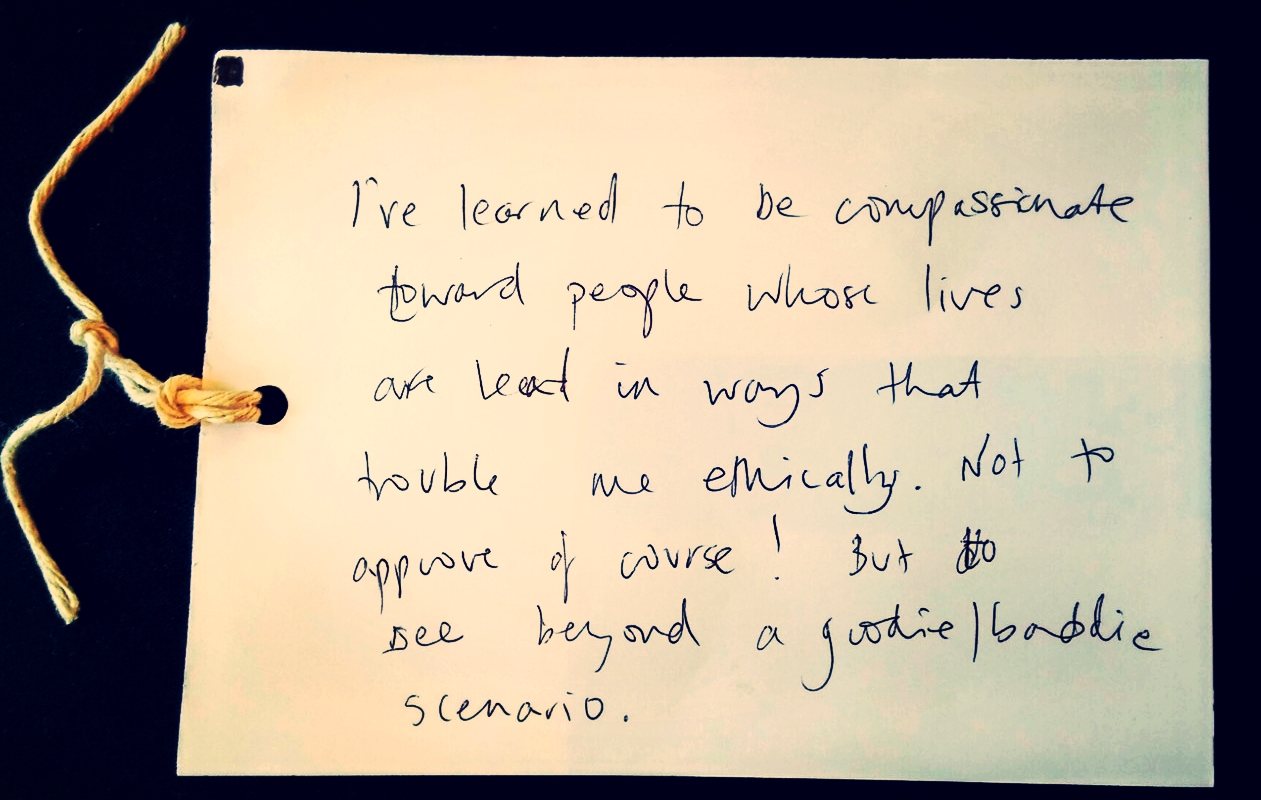 I've learned to be compassionate
toward people whose lives
are lead in ways that
trouble me ethically. Not to
approve of course! But to
see beyond a goodie/baddie
scenario.